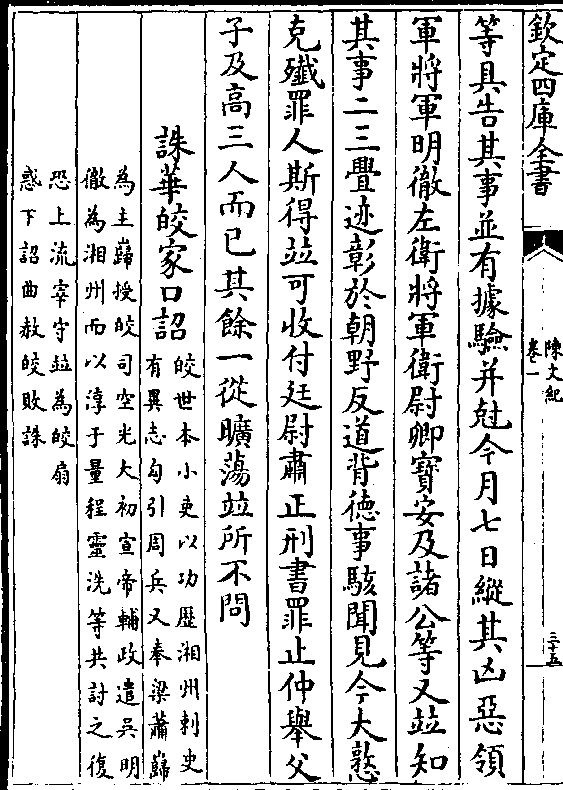 欽定四庫全書
陳文紀
卷一
三十五
等具告其事並有據驗并尅今月七日縱其凶惡領
軍將軍明徹左衛將軍衛尉卿寶安及諸公等又竝知
其事二三疊迹彰於朝野反道背德事駭聞見今大憝
克殲罪人斯得竝可收付廷尉肅正刑書罪止仲舉父
子及高三人而已其餘一從曠蕩竝所不問
誅華皎家口詔
皎世本小吏以功歷湘州刺史
有異志勾引周兵又奉梁蕭巋
為主巋授皎司空光大初宣帝輔政遣吳明
徹為湘州而以淳于量程靈洗等共討之復
恐上流宰守竝為皎扇
惑下詔曲赦皎敗誅